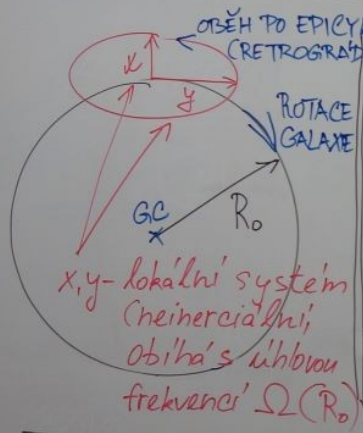 OBĚH PO EPICY
(RETROGRÁD
x
y
ROTACE
GALAXE
GC
R₀
x, y - lokální systém
(neinerciální,
obíhá s úhlovou
frekvencí Ω(R₀)